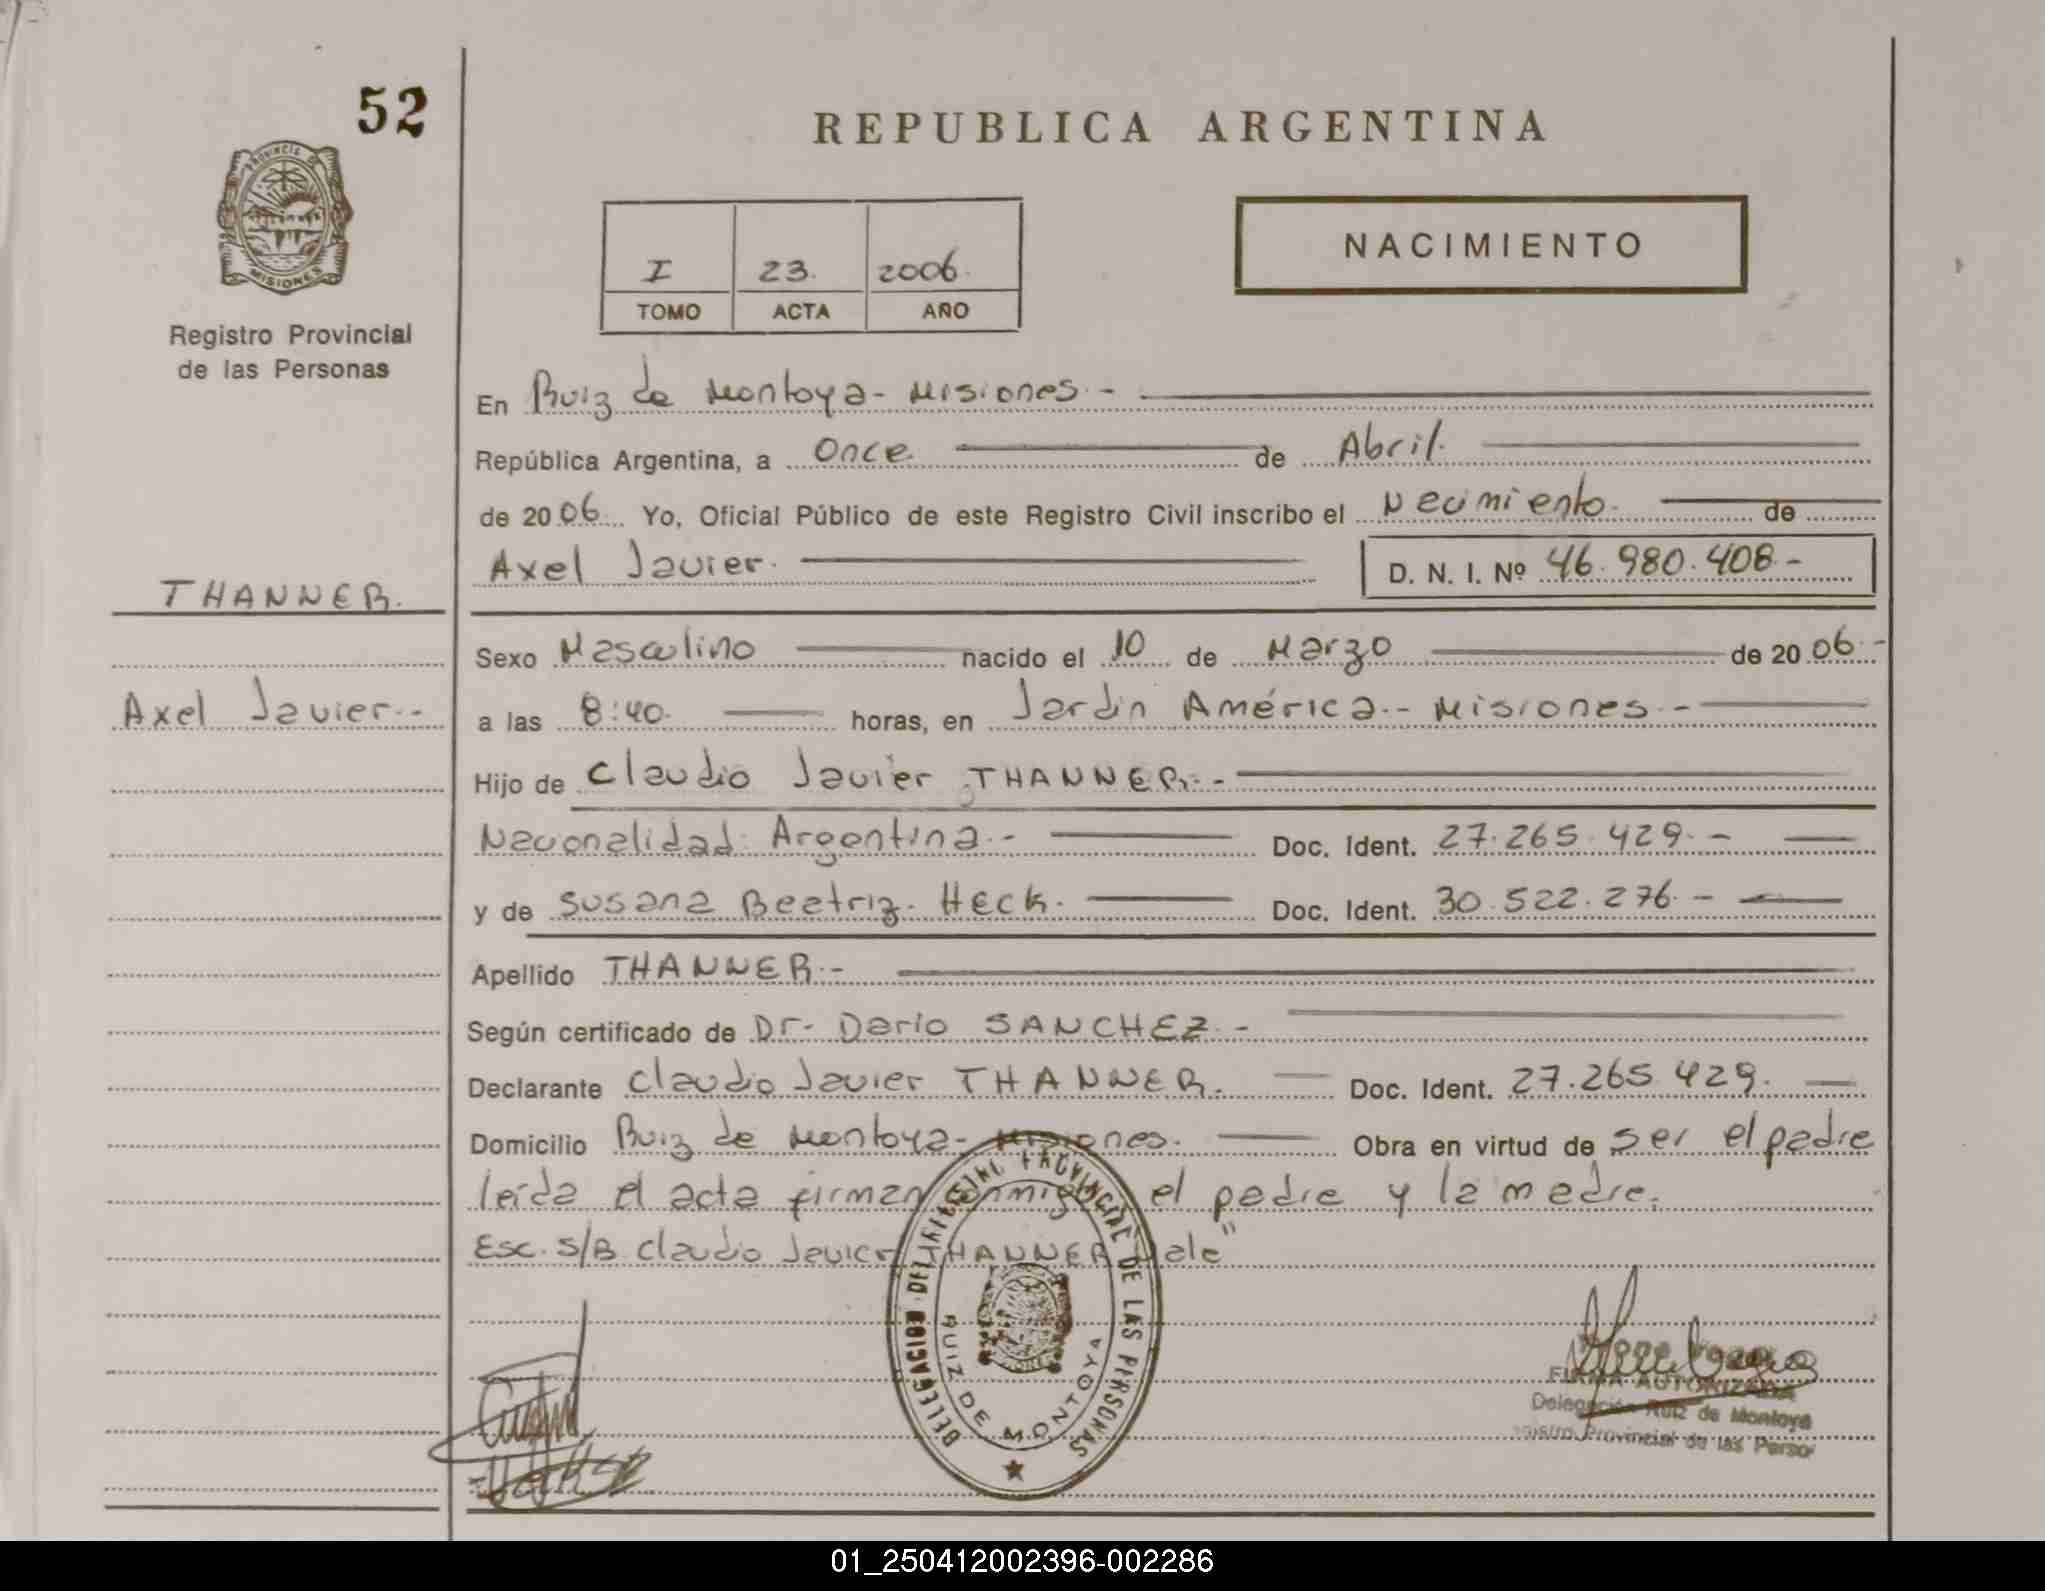 52
REPUBLICA ARGENTINA
PROVINCIA DE
MISIONES
Registro Provincial
de las Personas
I 23. 2006.
TOMO ACTA AÑO
NACIMIENTO
En Ruiz de Montoya - Misiones.-
República Argentina, a Once de Abril.
de 2006 Yo, Oficial Público de este Registro Civil inscribo el Nacimiento. de
Axel Javier. D. N. I. Nº 46.980.408.-
THANNER.
Axel Javier.-
Sexo Masculino nacido el 10 de Marzo de 2006.-
a las 8:40. horas, en Jardín América.- Misiones.-
Hijo de Claudio Javier THANNER.-
Nacionalidad: Argentina.- Doc. Ident. 27.265.429.-
y de Susana Beatriz. Heck. Doc. Ident. 30.522.276.-
Apellido THANNER.-
Según certificado de Dr. Dario SANCHEZ.-
Declarante Claudio Javier THANNER. Doc. Ident. 27.265.429.
Domicilio Ruiz de Montoya- Misiones. Obra en virtud de ser el padre
leída el acta firman conmigo el padre y la madre.
Esc. S/B. Claudio Javier THANNER Vale"
DELEGACION DEL REGISTRO PROVINCIAL DE LAS PERSONAS
RUIZ DE MONTOYA
FIRMA AUTORIZADA
Delegación Ruiz de Montoya
Provincial de las Perso
01_250412002396-002286